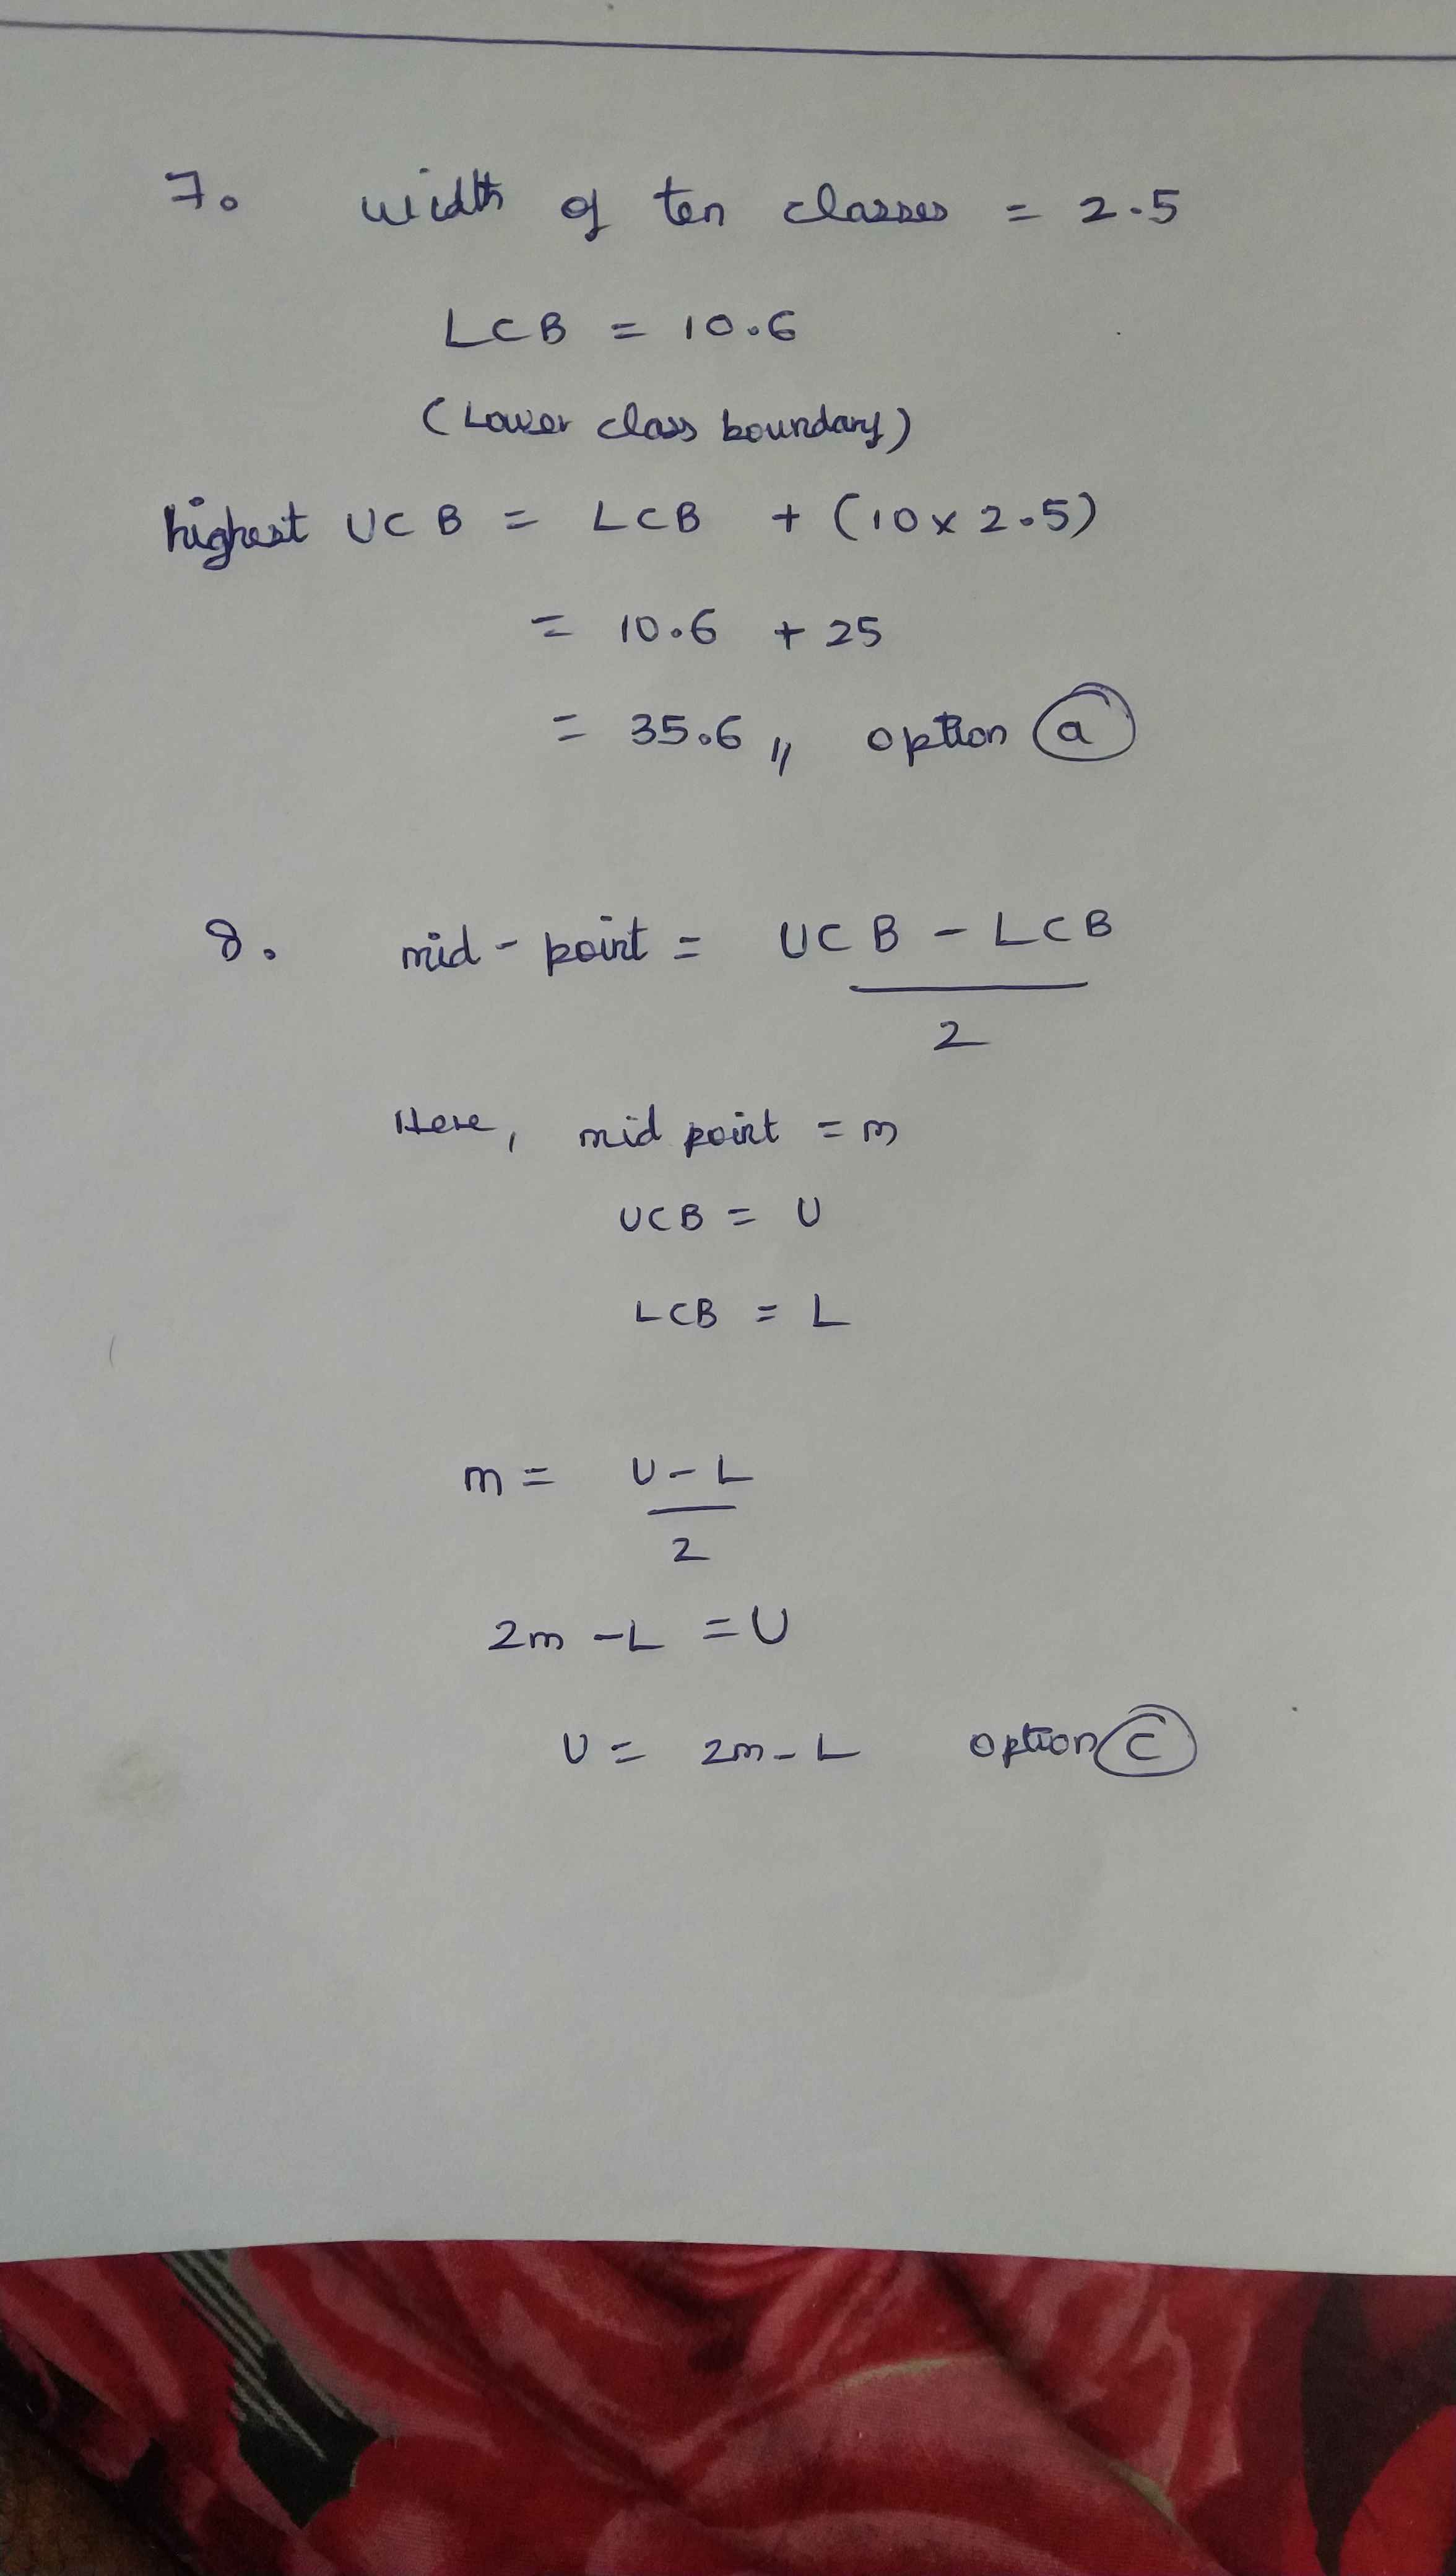 7. width of ten classes = 2.5
LCB = 10.6
(Lower class boundary)
highest UCB = LCB + (10 x 2.5)
= 10.6 + 25
= 35.6 ,, option a
8. mid - point = UCB - LCB
2
Here, mid point = m
UCB = U
LCB = L
m = U - L
2
2m - L = U
U = 2m - L option c